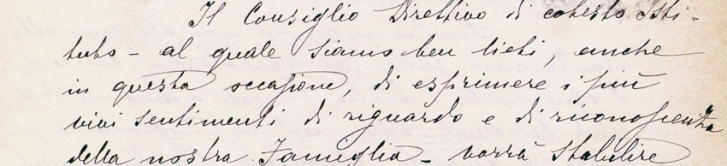 Il Consiglio Direttivo di cotesto Isti-
tuto - al quale siamo ben lieti, anche
in questa occasione, di esprimere i più
vivi sentimenti di riguardo e di riconoscenza
della nostra Famiglia - vorrà stabilire